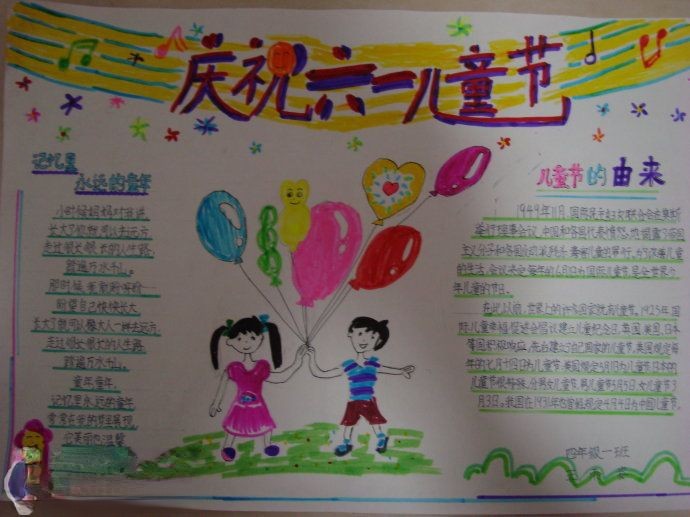 庆祝六一儿童节
记忆里
永远的童年
小时候妈妈对我说
长大了你就可以去远方
走过很长很长的人生路
踏遍万水千山。
那时候
盼望自己快快长大
长大了就可以像大人一样去远方
走过很长很长的人生路
踏遍万水千山。
童年童年
记忆里永远的童年
常常在我的梦里展现
儿童节的由来
1949年11月，国际民主妇女联合会在莫斯
科举行理事会议，中国和各国代表愤怒地揭露了帝国
主义分子和各国反动派残杀、毒害儿童的罪行。为了保障儿童
的生活，会议决定每年的6月1日为国际儿童节，是全世界少
年儿童的节日。
在此以前，世界上的许多国家就有儿童节。1925年国
际儿童幸福促进会倡议建立儿童纪念日，英国、美国、日本
等国积极响应，先后建立了自己国家的儿童节。英国规定每
年的七月十四日为儿童节，美国规定5月1日为儿童节，日本的
儿童节很特殊，分男女儿童节，男儿童节5月5日，女儿童节3
月3日。我国在1931年也曾经规定4月4日为中国儿童节。
四年级一班